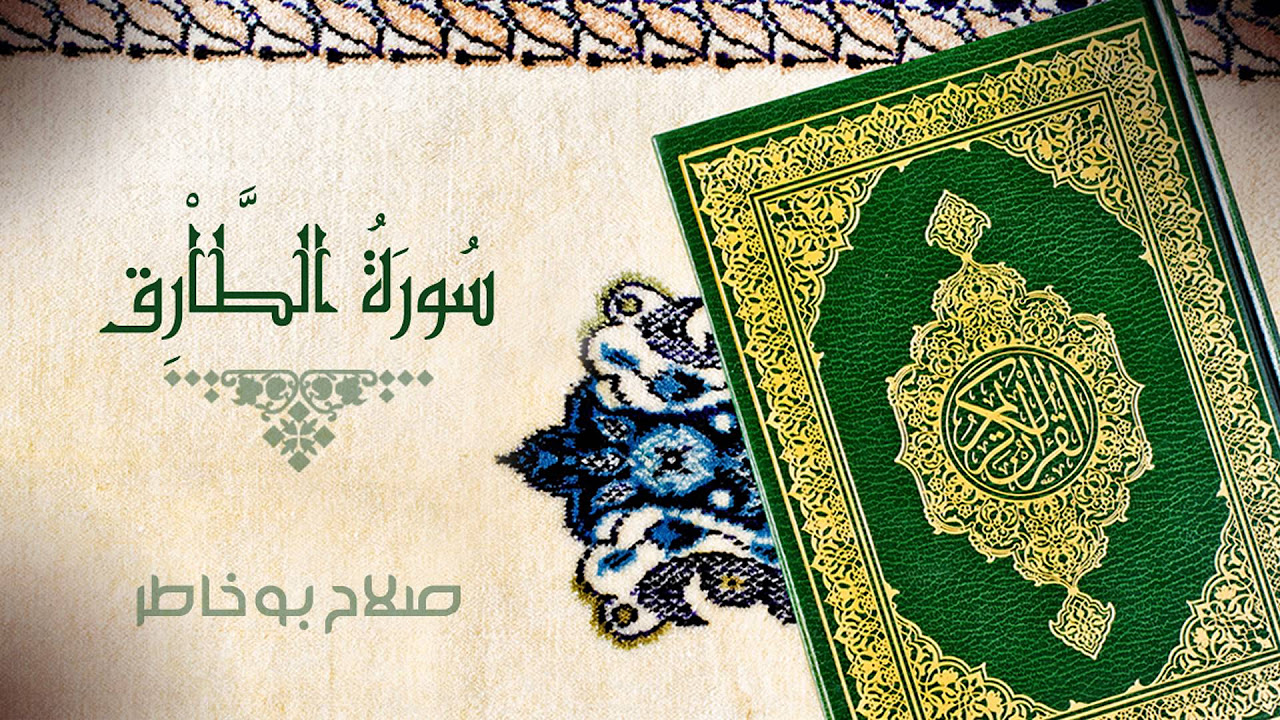 سُورَةُ الطَّارِقِ
صلاح بو خاطر
القرآن الكريم